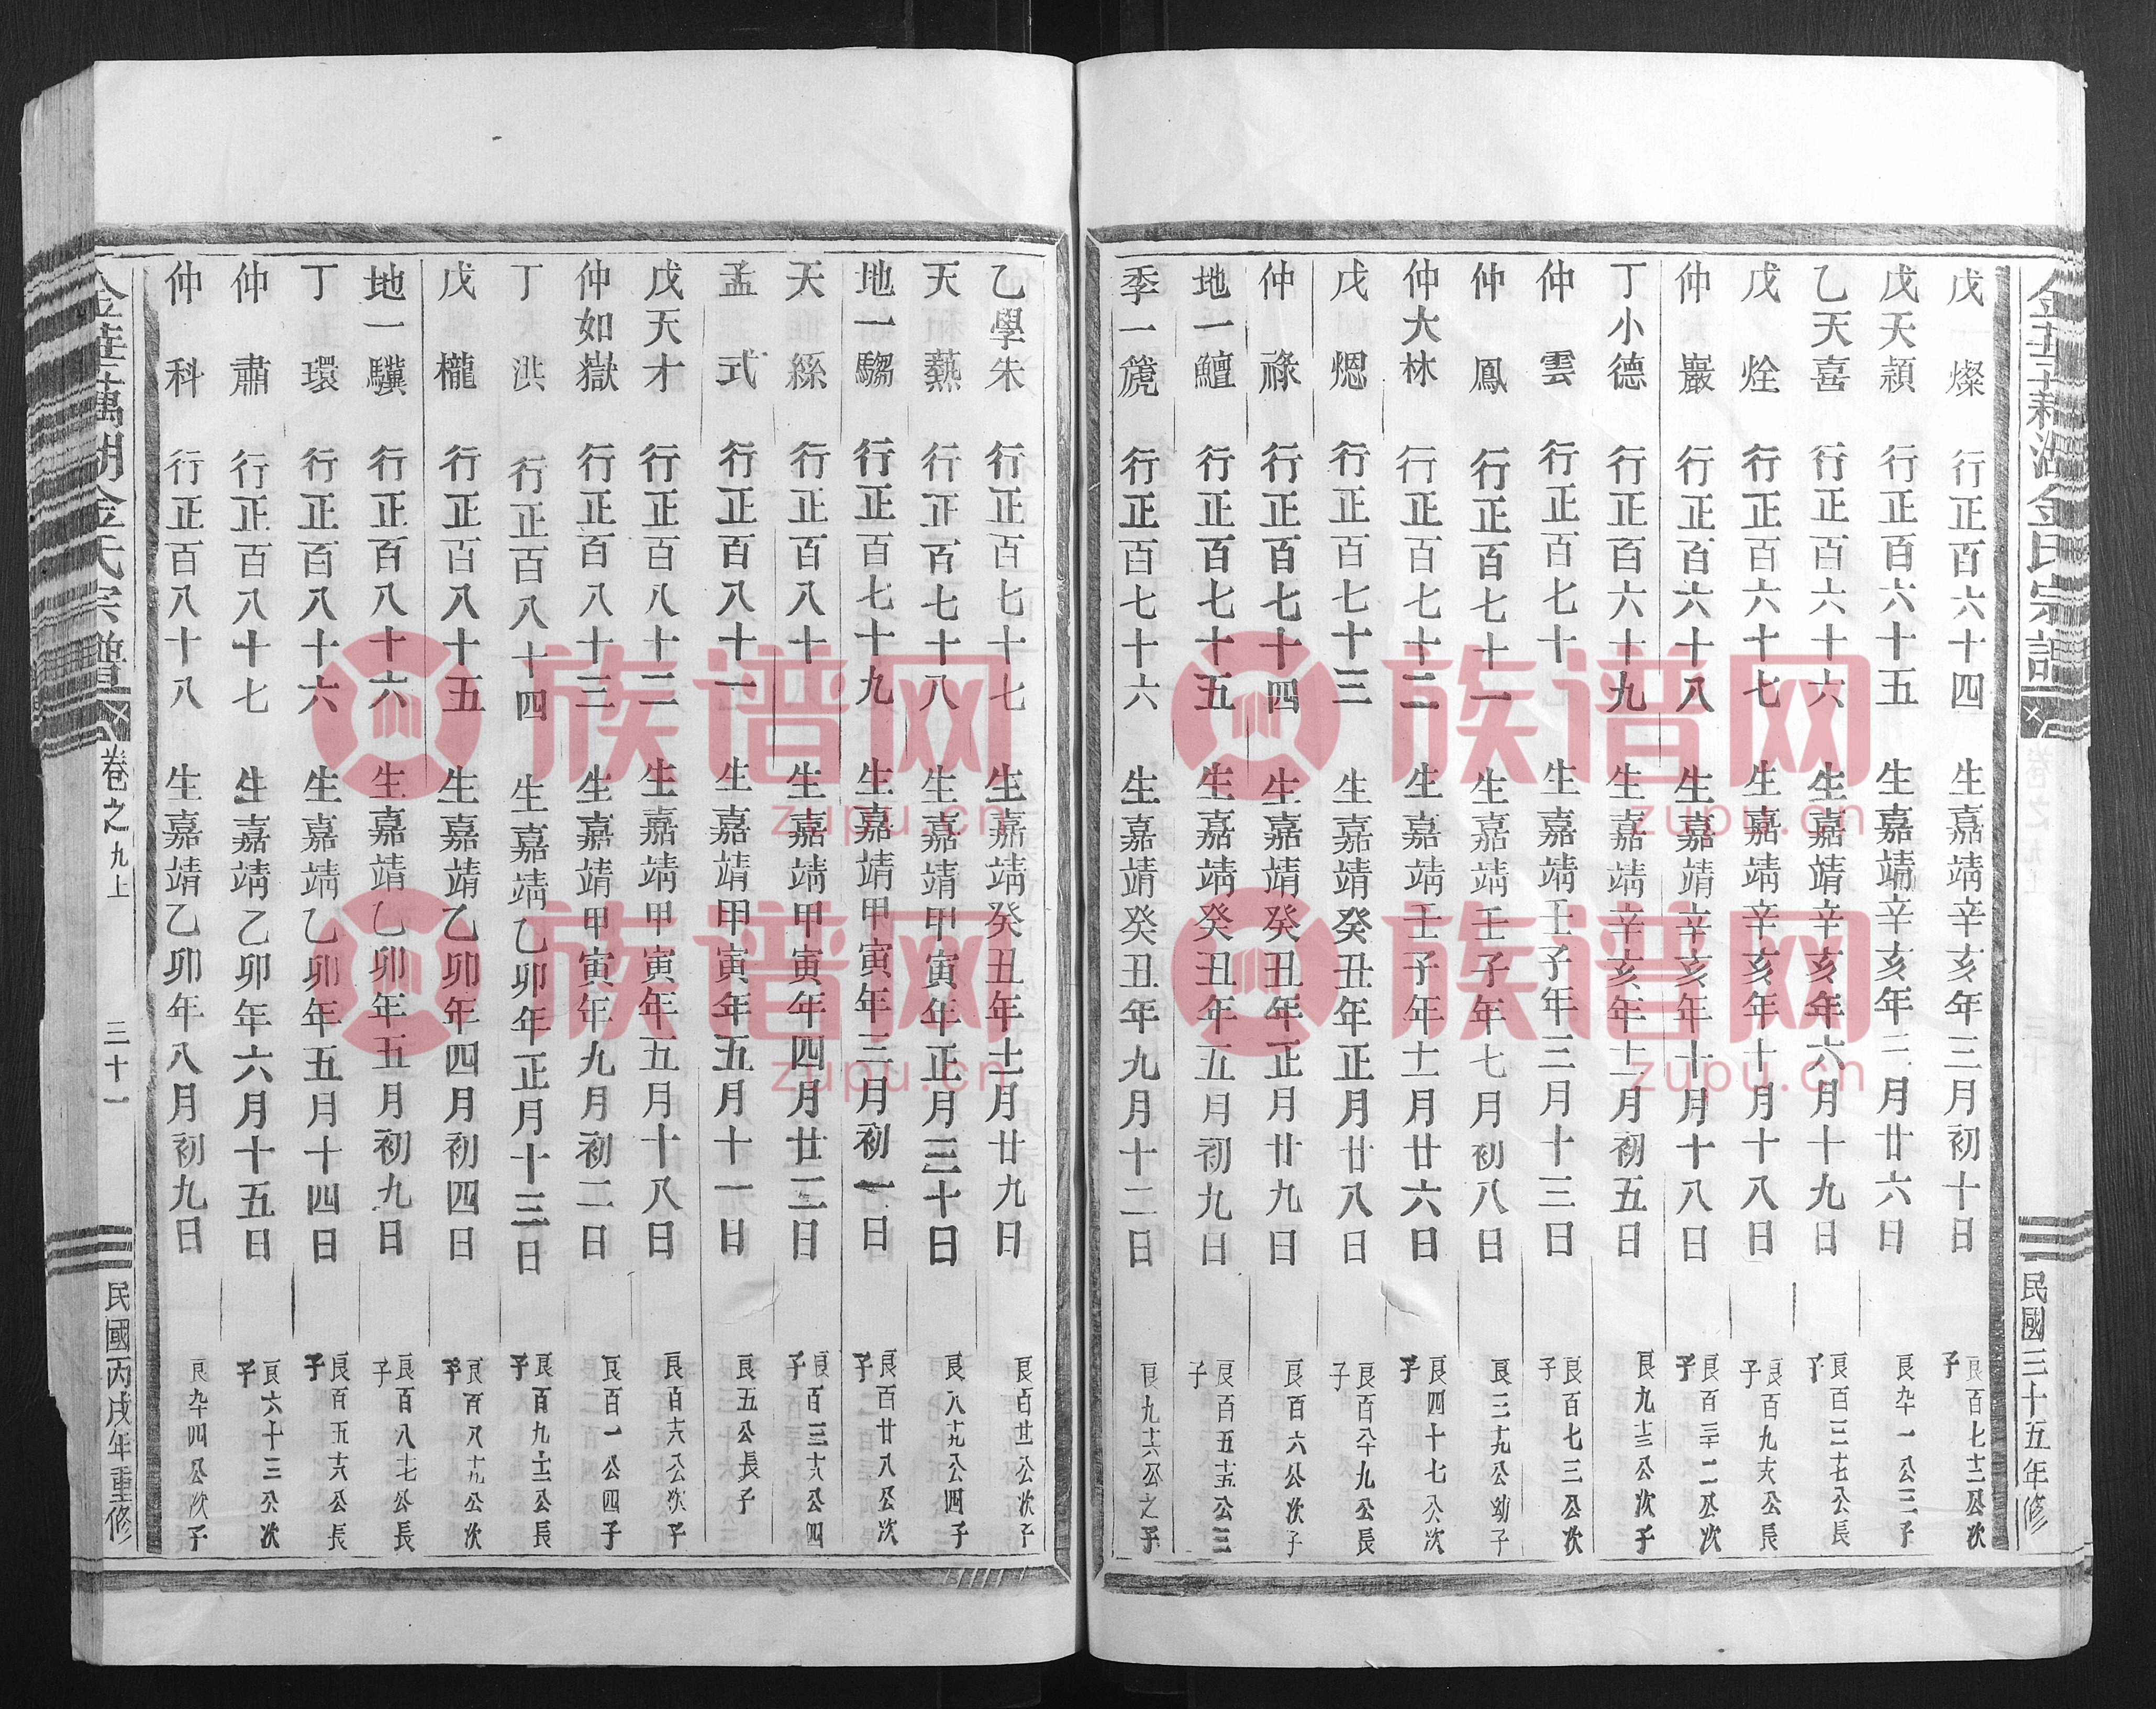 金華蕭湖金氏宗譜
民國三十五年修
戊　燦　行正百六十四　生嘉靖辛亥年三月初十日　良百七十二公次子
戊天潁　行正百六十五　生嘉靖辛亥年三月廿六日　良九十一公三子
乙天喜　行正百六十六　生嘉靖辛亥年六月十九日　良百三十七公長子
戊　烇　行正百六十七　生嘉靖辛亥年十月十八日　良百九十六公長子
仲　巖　行正百六十八　生嘉靖辛亥年十月十八日　良百三十二公次子
丁小德　行正百六十九　生嘉靖辛亥年十二月初五日　良九十三公次子
仲　雲　行正百七十　生嘉靖壬子年三月十三日　良百七三公次子
仲　鳳　行正百七十一　生嘉靖壬子年七月初八日　良三十九公幼子
仲大林　行正百七十二　生嘉靖壬子年十二月廿六日　良四十七公次子
戊　熜　行正百七十三　生嘉靖癸丑年正月廿八日　良百八十九公長子
仲　祿　行正百七十四　生嘉靖癸丑年正月廿九日　良百六公次子
地一鱣　行正百七十五　生嘉靖癸丑年五月初九日　良百五十五公三子
季一箎　行正百七十六　生嘉靖癸丑年九月十二日　良九十六公之子
乙學朱　行正百七十七　生嘉靖癸丑年十二月廿九日　良百廿二公次子
天　爇　行正百七十八　生嘉靖甲寅年正月三十日　良八十九公四子
地一騶　行正百七十九　生嘉靖甲寅年三月初一日　良百廿八公次子
天　絲　行正百八十　生嘉靖甲寅年四月廿二日　良百三十八公四子
孟　式　行正百八十一　生嘉靖甲寅年五月十一日　良五公長子
戊天才　行正百八十二　生嘉靖甲寅年五月十八日　良百六公次子
仲如嶽　行正百八十三　生嘉靖甲寅年九月初二日　良百一公四子
丁　洪　行正百八十四　生嘉靖乙卯年正月十三日　良百九十二公長子
戊　櫳　行正百八十五　生嘉靖乙卯年四月初四日　良百八十九公次子
地一驥　行正百八十六　生嘉靖乙卯年五月初九日　良百八十七公長子
丁　環　行正百八十六　生嘉靖乙卯年五月十四日　良百五十六公長子
仲　肅　行正百八十七　生嘉靖乙卯年六月十五日　良六十三公次子
仲　科　行正百八十八　生嘉靖乙卯年八月初九日　良九十四公次子
金華蕭湖金氏宗譜
卷之九上
三十一
民國丙戌年重修
族谱网
zupu.cn
族谱网
zupu.cn
族谱网
zupu.cn
族谱网
zupu.cn